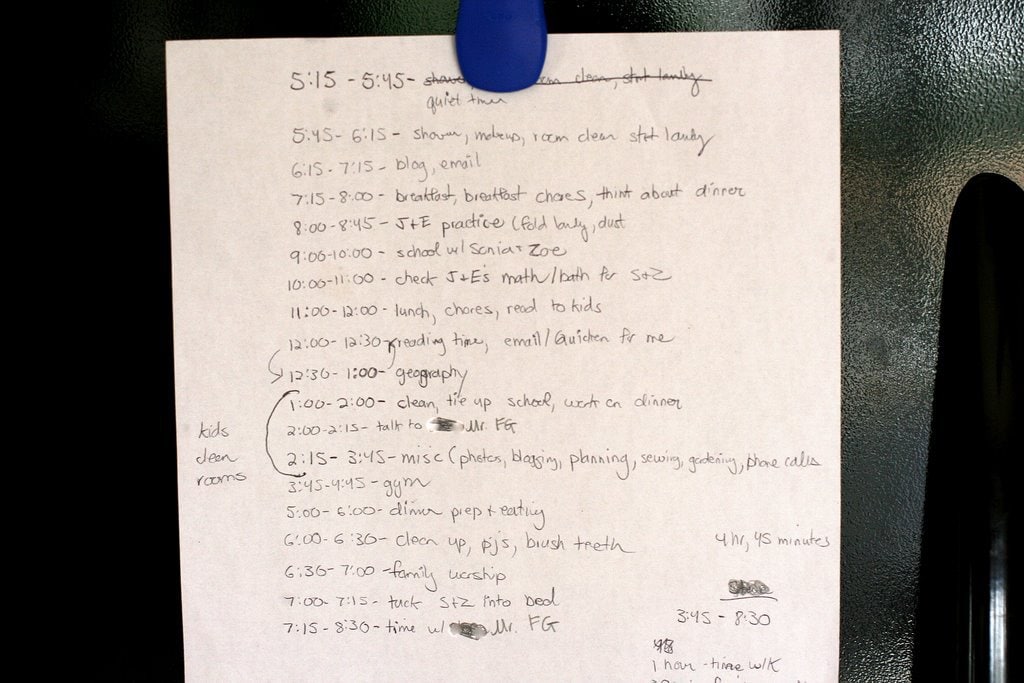 5:15 - 5:45 - clean, strt landy
quiet time
5:45 - 6:15 - shower, makeup, room clean strt landy
6:15 - 7:15 - blog, email
7:15 - 8:00 - breakfast, breakfast chores, think about dinner
8:00 - 8:45 - J+E practice (fold landy, dust
9:00-10:00 - school w/ Sonia + Zoe
10:00-11:00 - check J+E's math/bath for S+Z
11:00 - 12:00 - lunch, chores, read to kids
12:00 - 12:30 - reading time, email/Quicken for me
12:30 - 1:00 - geography
1:00 - 2:00 - clean, tie up school, work on dinner
2:00-2:15 - talk to Mr. FG
kids
clean
rooms
2:15 - 3:45 - misc (photos, blogging, planning, sewing, gardening, phone calls
3:45-4:45 - gym
5:00 - 6:00 - dinner prep + eating
6:00 - 6:30 - clean up, pj's, brush teeth
4 hr, 45 minutes
6:30 - 7:00 - family worship
7:00 - 7:15 - tuck S+Z into bed
3:45 - 8:30
7:15 - 8:30 - time w/ Mr. FG
1 hour - time w/K